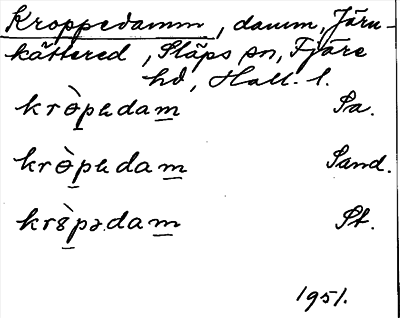 Kroppedamm, damm, Järn-
kättered, Släps sn, Fjäre
hd, Hall. l.
krɵ̀pɐdam Sa.
krɵ̀pɐdam Sand.
kr8̀pədam St.
1951.